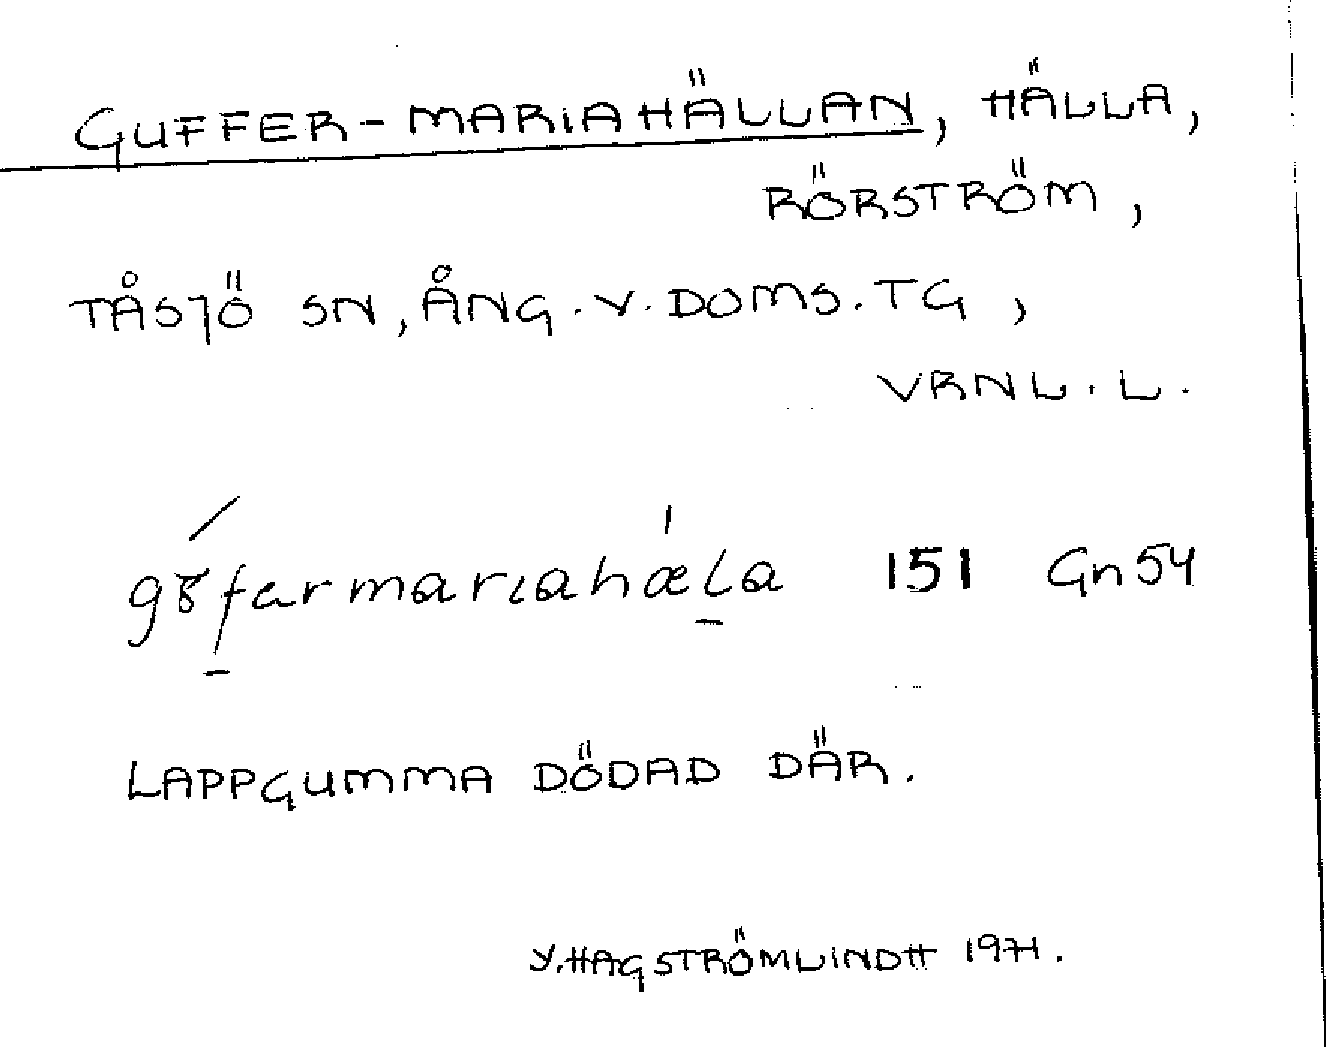 GUFFER-MARIAHÄLLAN, HÄLLA,
RÖRSTRÖM,
TÅSJÖ SN, ÅNG. V. DOMS. TG,
VRNL. L.
g8́farmarιahæ̍la 151 Gn54
LAPPGUMMA DÖDAD DÄR.
Y. HAGSTRÖMLINDH 1971.